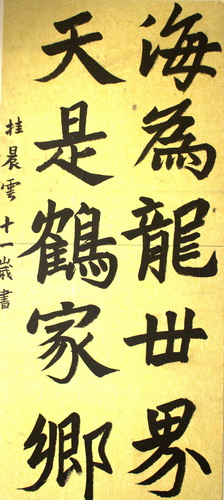 海為龍世界
天是鶴家鄉
桂晨雲十一歲書